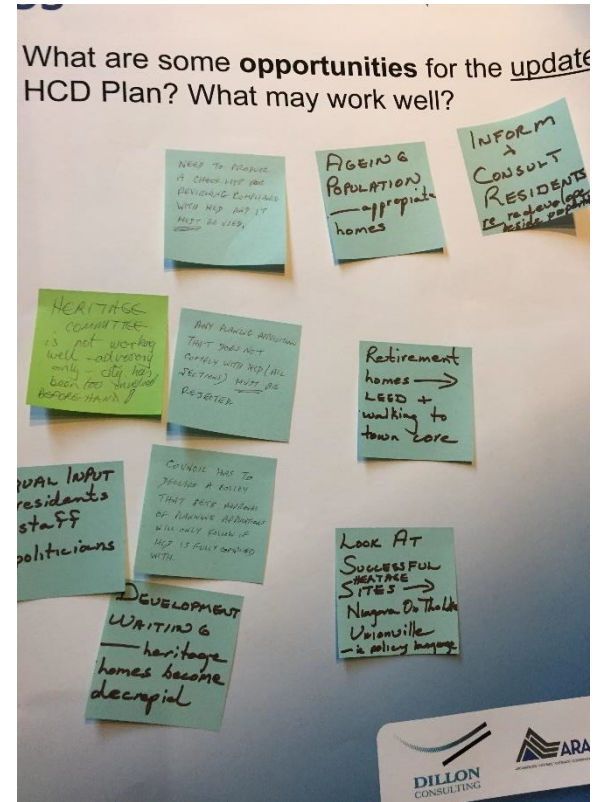 What are some opportunities for the update
HCD Plan? What may work well?
NEED TO PRODUCE
A CHECK LIST FOR
REVIEWING COMPLIANCE
WITH HCD AND IT
MUST BE USED.
AGEING
POPULATION
— appropiate
homes
INFORM
+
CONSULT
RESIDENTS
re redevelope
beside
HERITAGE
COMMITTEE
is not working
well - advisory
only - city has
been too involved
BEFOREHAND!
ANY PLANNING APPLICATION
THAT DOES NOT
COMPLY WITH HCD (ALL
SECTIONS) MUST BE
REJECTED
Retirement
homes →
LEED +
walking to
town core
QUAL INPUT
residents
staff
politicians
COUNCIL HAS TO
DEVELOP A POLICY
THAT SETS APPROVAL
OF PLANNING APPLICATIONS
WILL ONLY FOLLOW IF
HCD IS FULLY COMPLIED
WITH.
DEVELOPMENT
WAITING
— heritage
homes become
decrepid
LOOK AT
SUCCESSFUL
HERITAGE
SITES →
Niagara On The Lake
Unionville
— in policy language
DILLON
CONSULTING
ARA